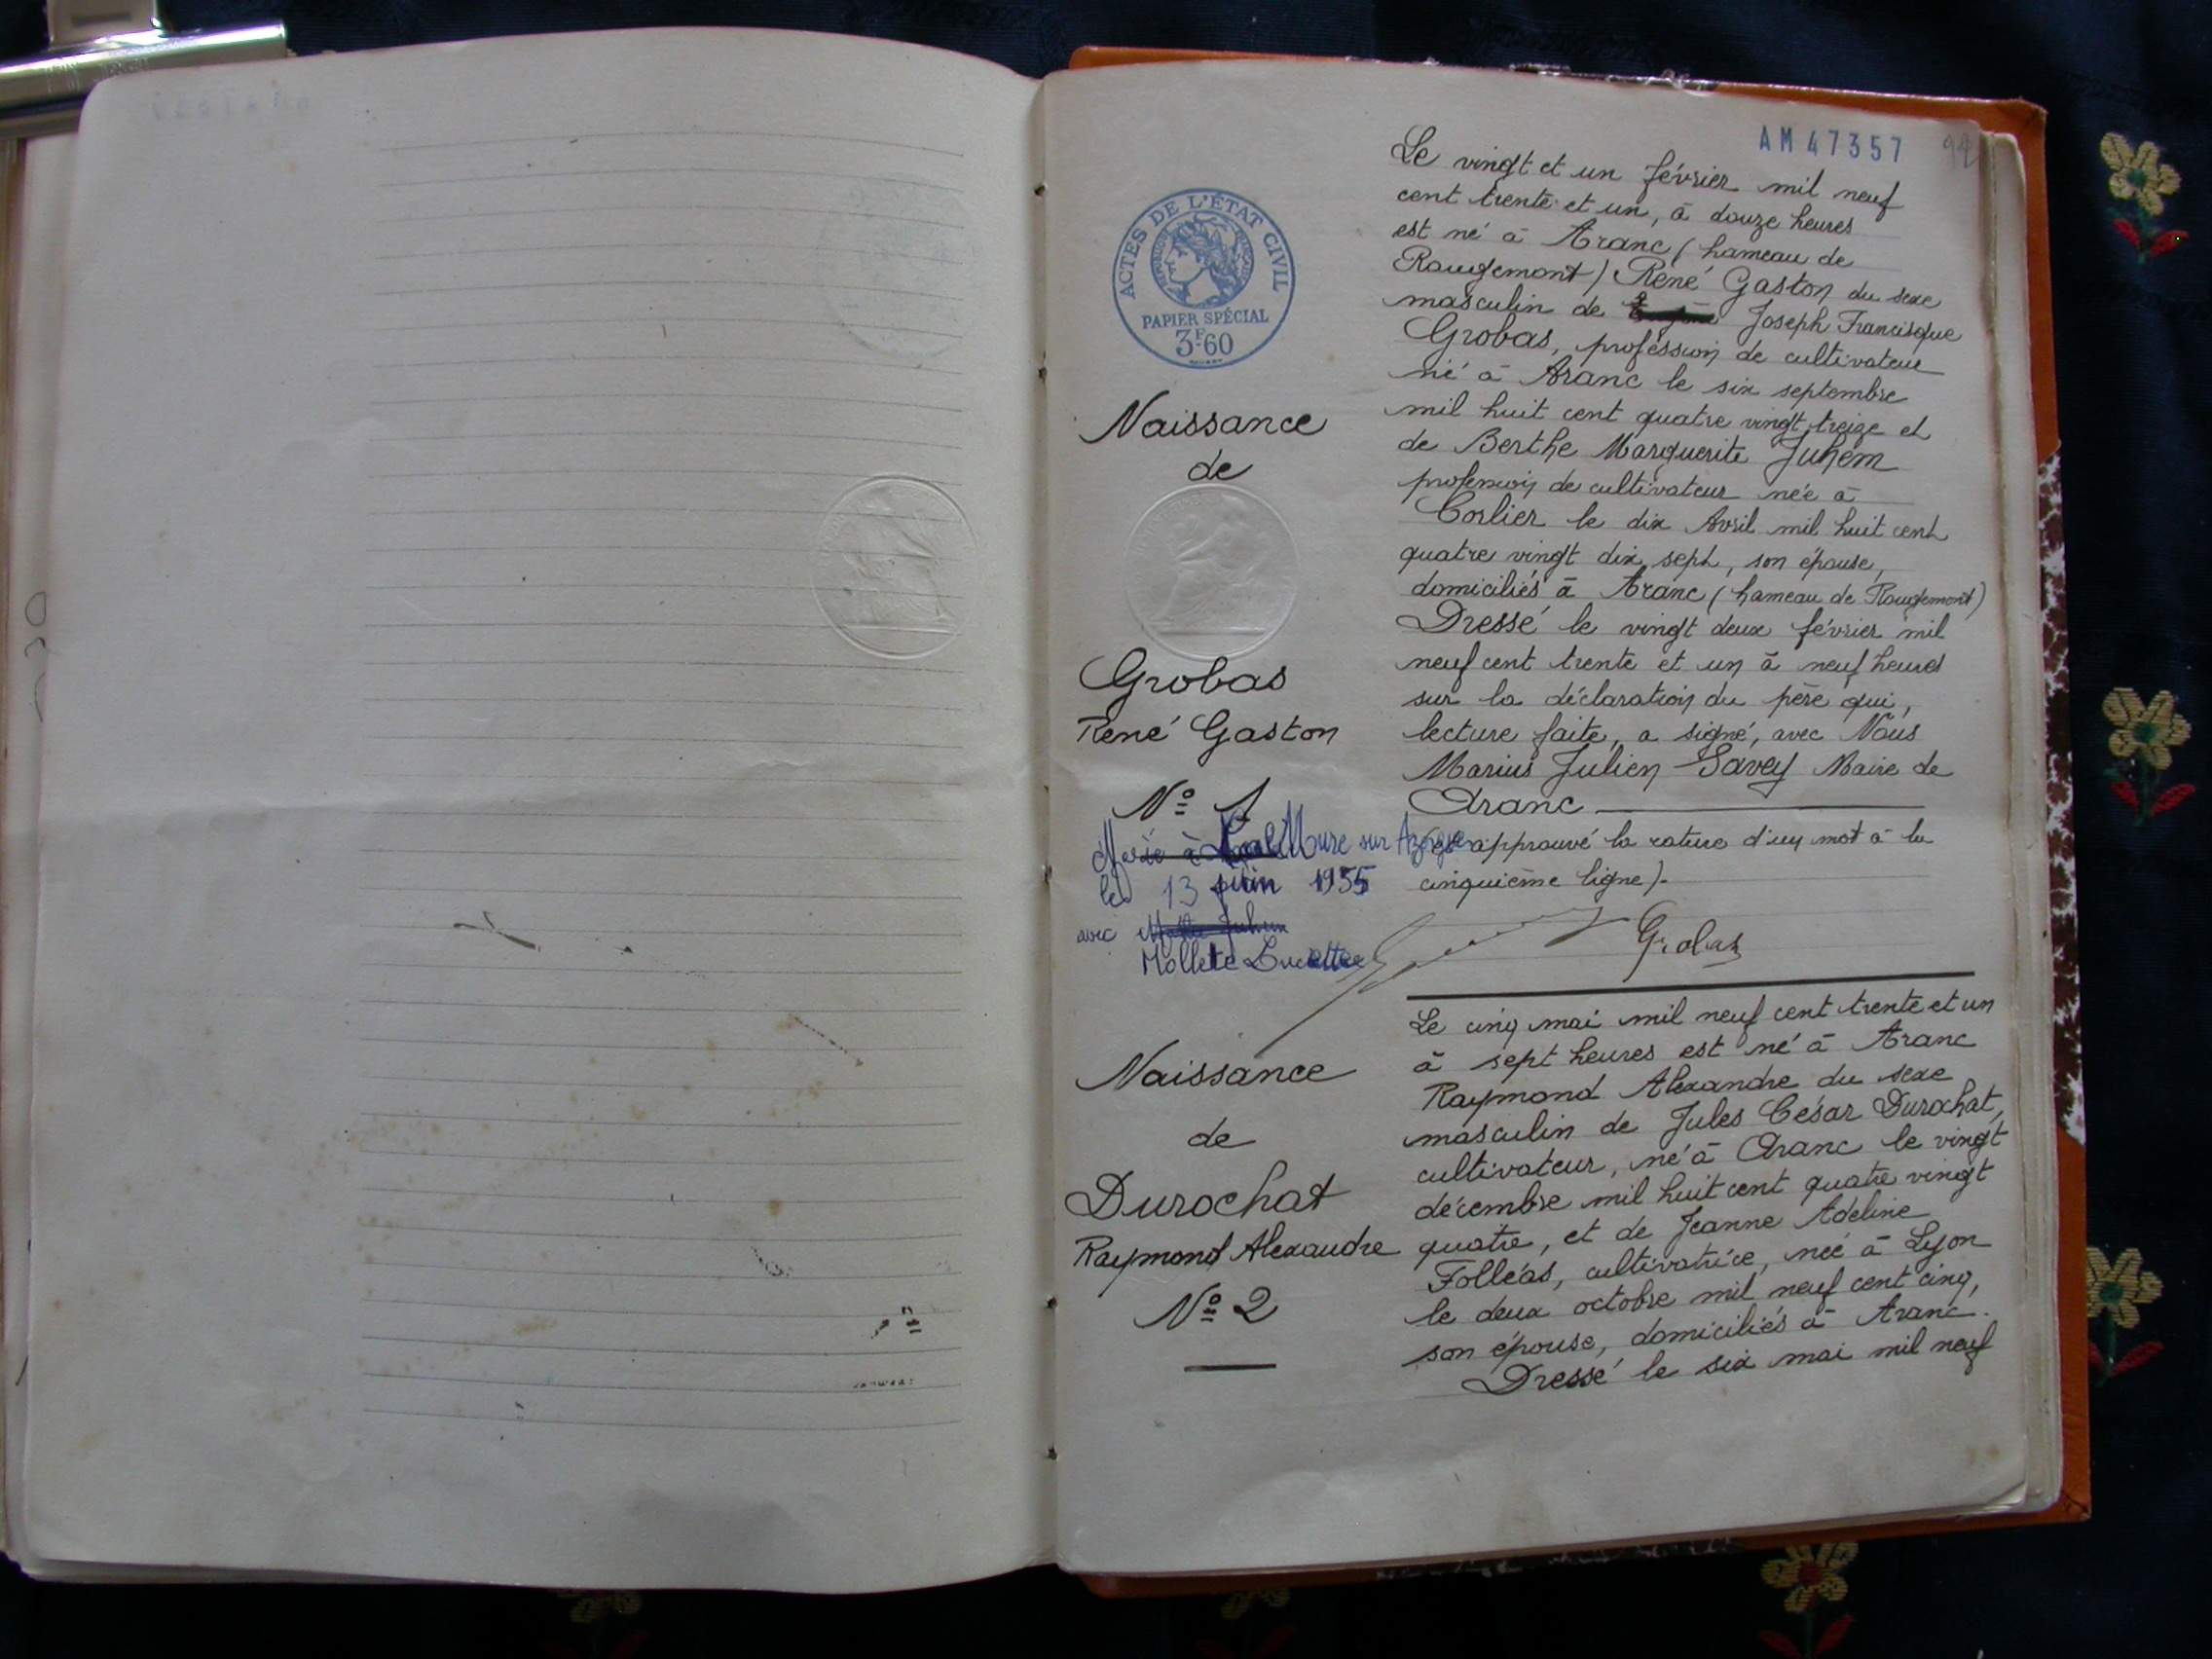 AM 47357
92
ACTES DE L'ÉTAT CIVIL
PAPIER SPÉCIAL
3F.60
Naissance
de
Grobas
René Gaston
Nº 1
Marié à La Mure sur Azergues
le 13 juin 1955
avec
Mollete Lucette
Le vingt et un février mil neuf
cent trente et un, à douze heures
est né à Aranc (hameau de
Rougemont) René Gaston du sexe
masculin de Joseph Francisque
Grobas, profession de cultivateur
né à Aranc le six septembre
mil huit cent quatre vingt treize et
de Berthe Marguerite Juhem
profession de cultivateur née à
Corlier le dix Avril mil huit cent
quatre vingt dix sept, son épouse,
domiciliés à Aranc (hameau de Rougemont)
Dressé le vingt deux février mil
neuf cent trente et un à neuf heures
sur la déclaration du père qui,
lecture faite, a signé, avec Nous
Marius Julien Savey Maire de
Aranc
approuvé la rature d'un mot à la
cinquième ligne).
Grobas
Naissance
de
Durochat
Raymond Alexandre
Nº 2
Le cinq mai mil neuf cent trente et un
à sept heures est né à Aranc
Raymond Alexandre du sexe
masculin de Jules César Durochat,
cultivateur, né à Aranc le vingt
décembre mil huit cent quatre vingt
quatre, et de Jeanne Adeline
Folléas, cultivatrice, née à Lyon
le deux octobre mil neuf cent cinq,
son épouse, domiciliés à Aranc.
Dressé le six mai mil neuf